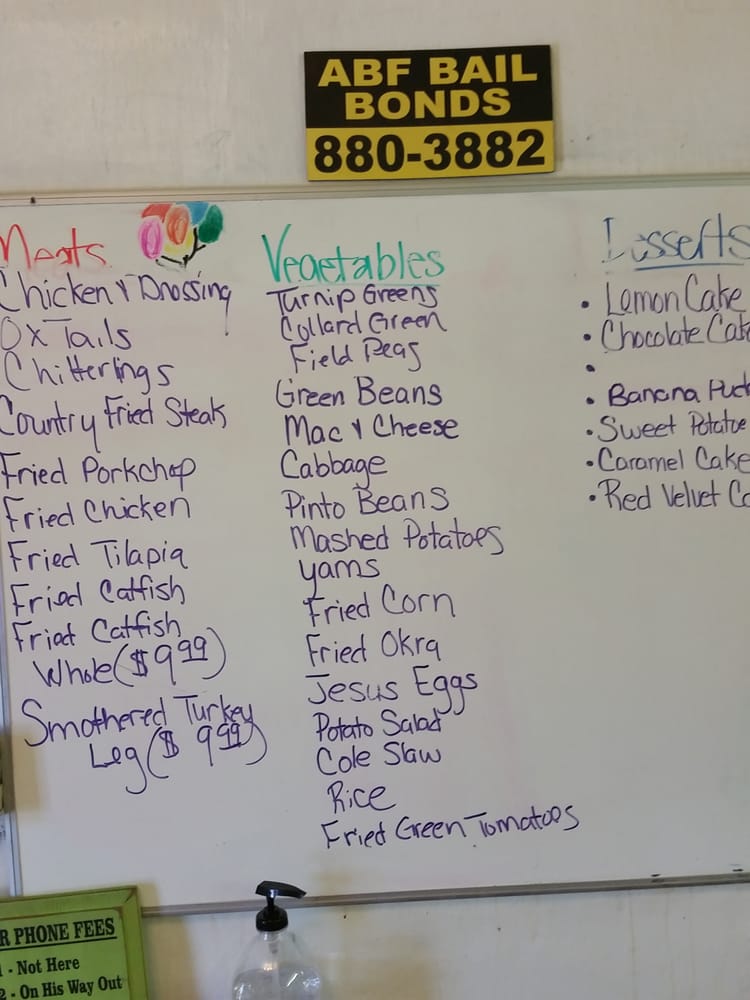 ABF BAIL
BONDS
880-3882
Meats
Chicken & Drossing
Ox Tails
Chitterlings
Country Fried Steak
Fried Porkchop
Fried Chicken
Fried Tilapia
Fried Catfish
Fried Catfish
Whole ($9.99)
Smothered Turkey
Leg ($9.99)
Vegetables
Turnip Greens
Collard Green
Field Peas
Green Beans
Mac & Cheese
Cabbage
Pinto Beans
Mashed Potatoes
Yams
Fried Corn
Fried Okra
Jesus Eggs
Potato Salad
Cole Slaw
Rice
Fried Green Tomatoes
Desserts
• Lemon Cake
• Chocolate Cak
•
• Banana Pud
• Sweet Potatoe
• Caramel Cake
• Red Velvet Ca
R PHONE FEES
- Not Here
2 - On His Way Out